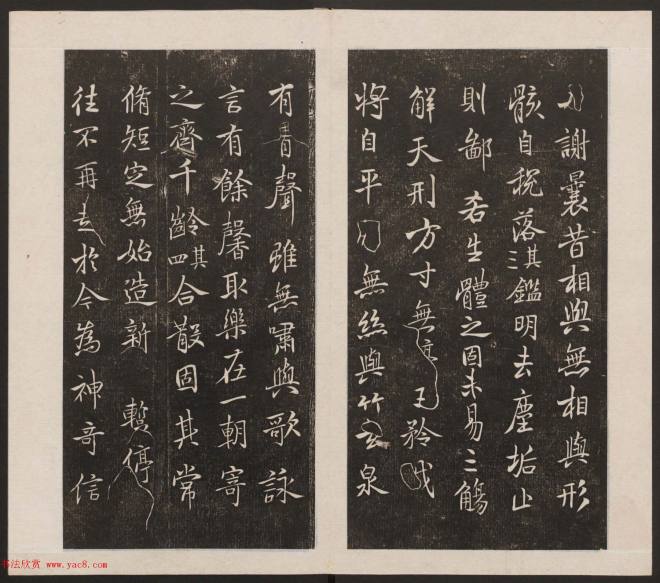 謝曩昔相與無相與形
骸自脫落其三鑑明去塵垢止
則鄙吝生體之固未易三觴
解天刑方寸無矜伐
將自平無絲與竹玄泉
有聲雖無嘯與歌詠
言有餘馨取樂在一朝寄
之齊千齡其四合散固其常
脩短定無始造新暫停
往不再起於今為神奇信
书法欣赏 www.yac8.com